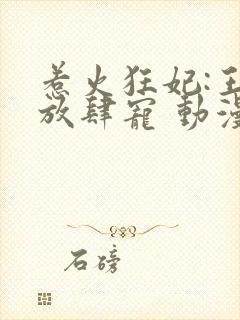 惹火狂妃:王
放肆寵 動漫
石磅